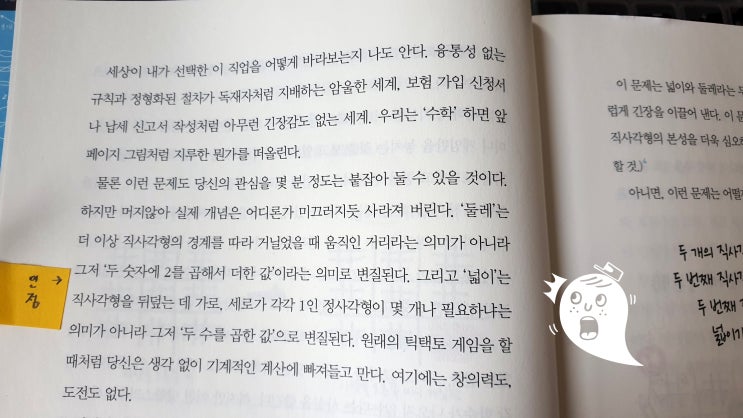 세상이 내가 선택한 이 직업을 어떻게 바라보는지 나도 안다. 융통성 없는
규칙과 정형화된 절차가 독재자처럼 지배하는 암울한 세계. 보험 가입 신청서
나 납세 신고서 작성처럼 아무런 긴장감도 없는 세계. 우리는 ‘수학’ 하면 앞
페이지 그림처럼 지루한 뭔가를 떠올린다.
물론 이런 문제도 당신의 관심을 몇 분 정도는 붙잡아 둘 수 있을 것이다.
하지만 머지않아 실제 개념은 어디론가 미끄러지듯 사라져 버린다. ‘둘레’는
더 이상 직사각형의 경계를 따라 거닐었을 때 움직인 거리라는 의미가 아니라
그저 ‘두 숫자에 2를 곱해서 더한 값’이라는 의미로 변질된다. 그리고 ‘넓이’는
직사각형을 뒤덮는 데 가로, 세로가 각각 1인 정사각형이 몇 개나 필요하냐는
의미가 아니라 그저 ‘두 수를 곱한 값’으로 변질된다. 원래의 틱택토 게임을 할
때처럼 당신은 생각 없이 기계적인 계산에 빠져들고 만다. 여기에는 창의력도,
도전도 없다.
이 문제는 넓이와 둘레라는 두
럽게 긴장을 이끌어 낸다. 이 문
직사각형의 본성을 더욱 심오하
할 것.)
아니면, 이런 문제는 어떨
두 개의 직사각
두 번째 직사각
두 번째 직
넓이가